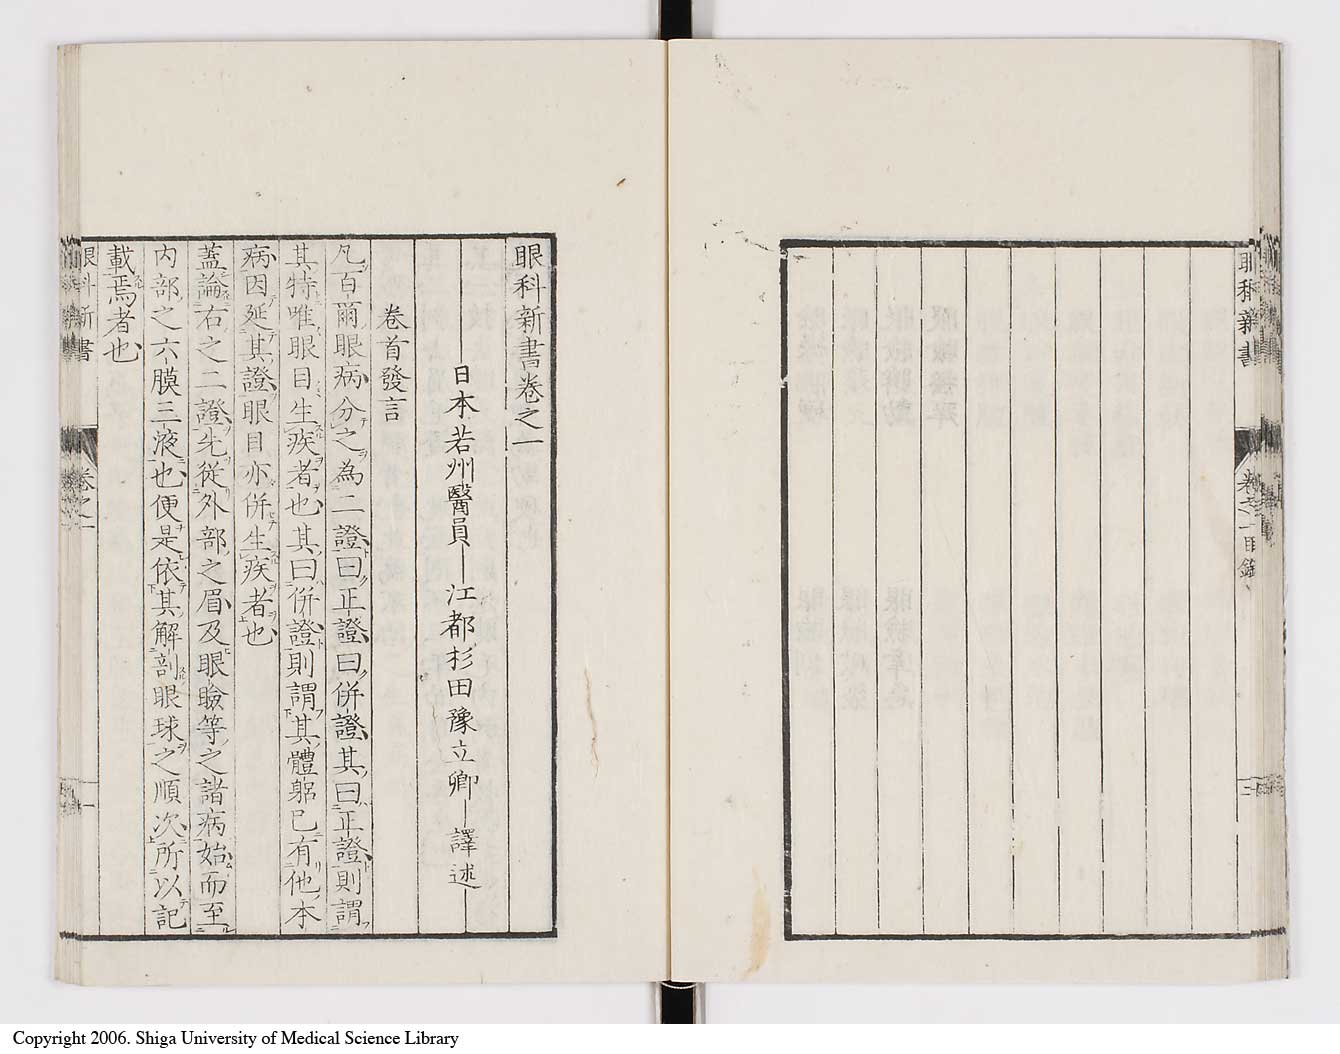 眼科新書
卷之一目錄
三
眼科新書卷之一
日本若州醫員 江都杉田豫立卿 譯述
卷首發言
凡百爾眼病分之為二證曰正證曰併證其曰正證則謂
其特唯眼目生疾者也其曰併證則謂其體躬已有他本
病因延其證眼目亦併生疾者也
蓋論右之二證先從外部之眉及眼瞼等之諸病始而至
內部之六膜三液也便是依其解剖眼球之順次所以記
載焉者也
眼科新書
卷之一
一
Copyright 2006. Shiga University of Medical Science Library